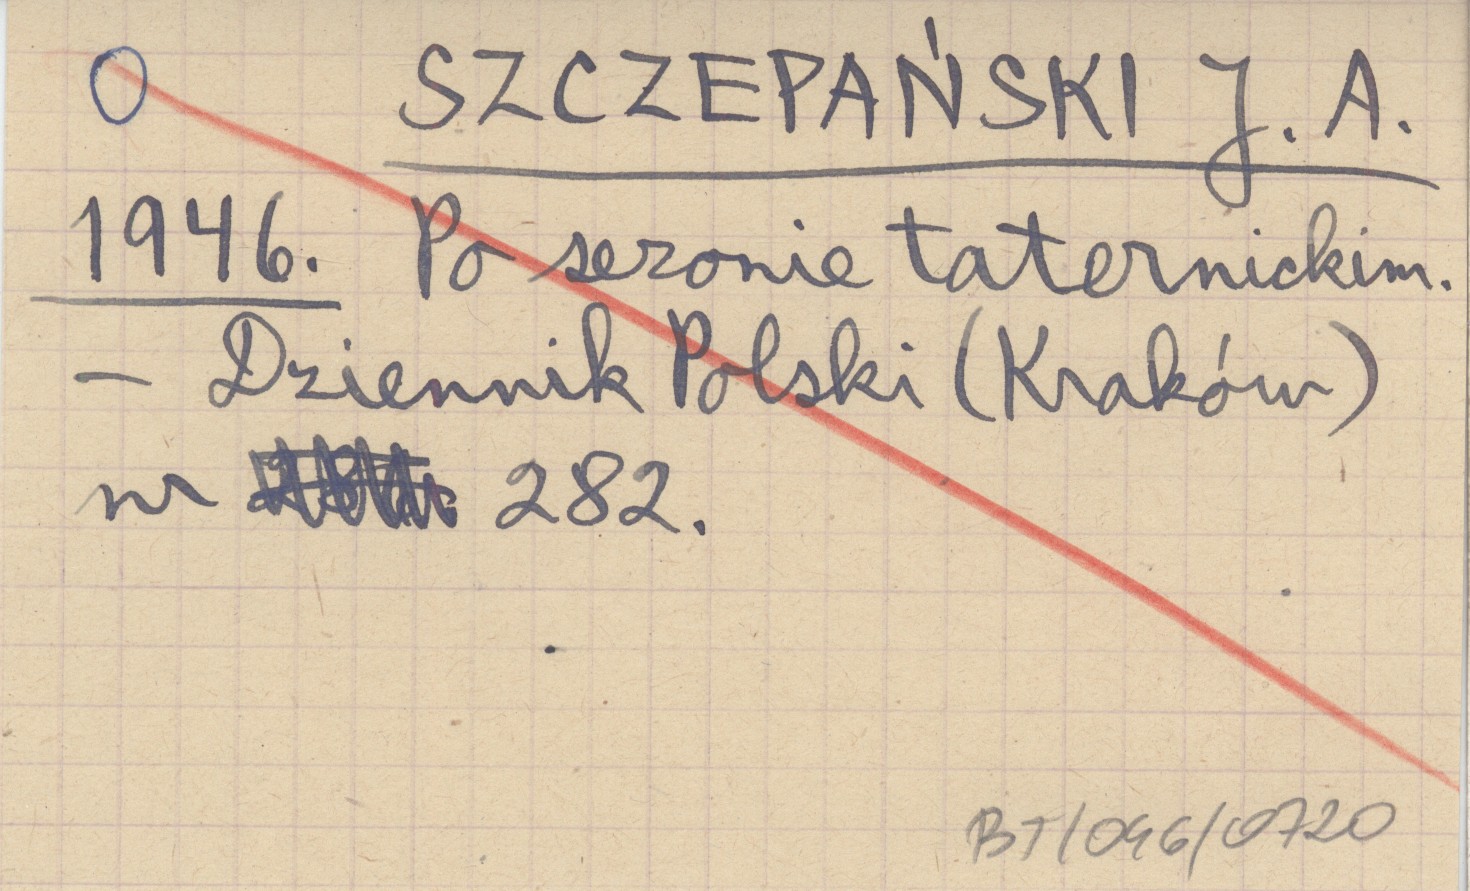 O SZCZEPAŃSKI J. A.
1946. Po sezonie taternickim.
– Dziennik Polski (Kraków)
nr 282.
BT/046/0720